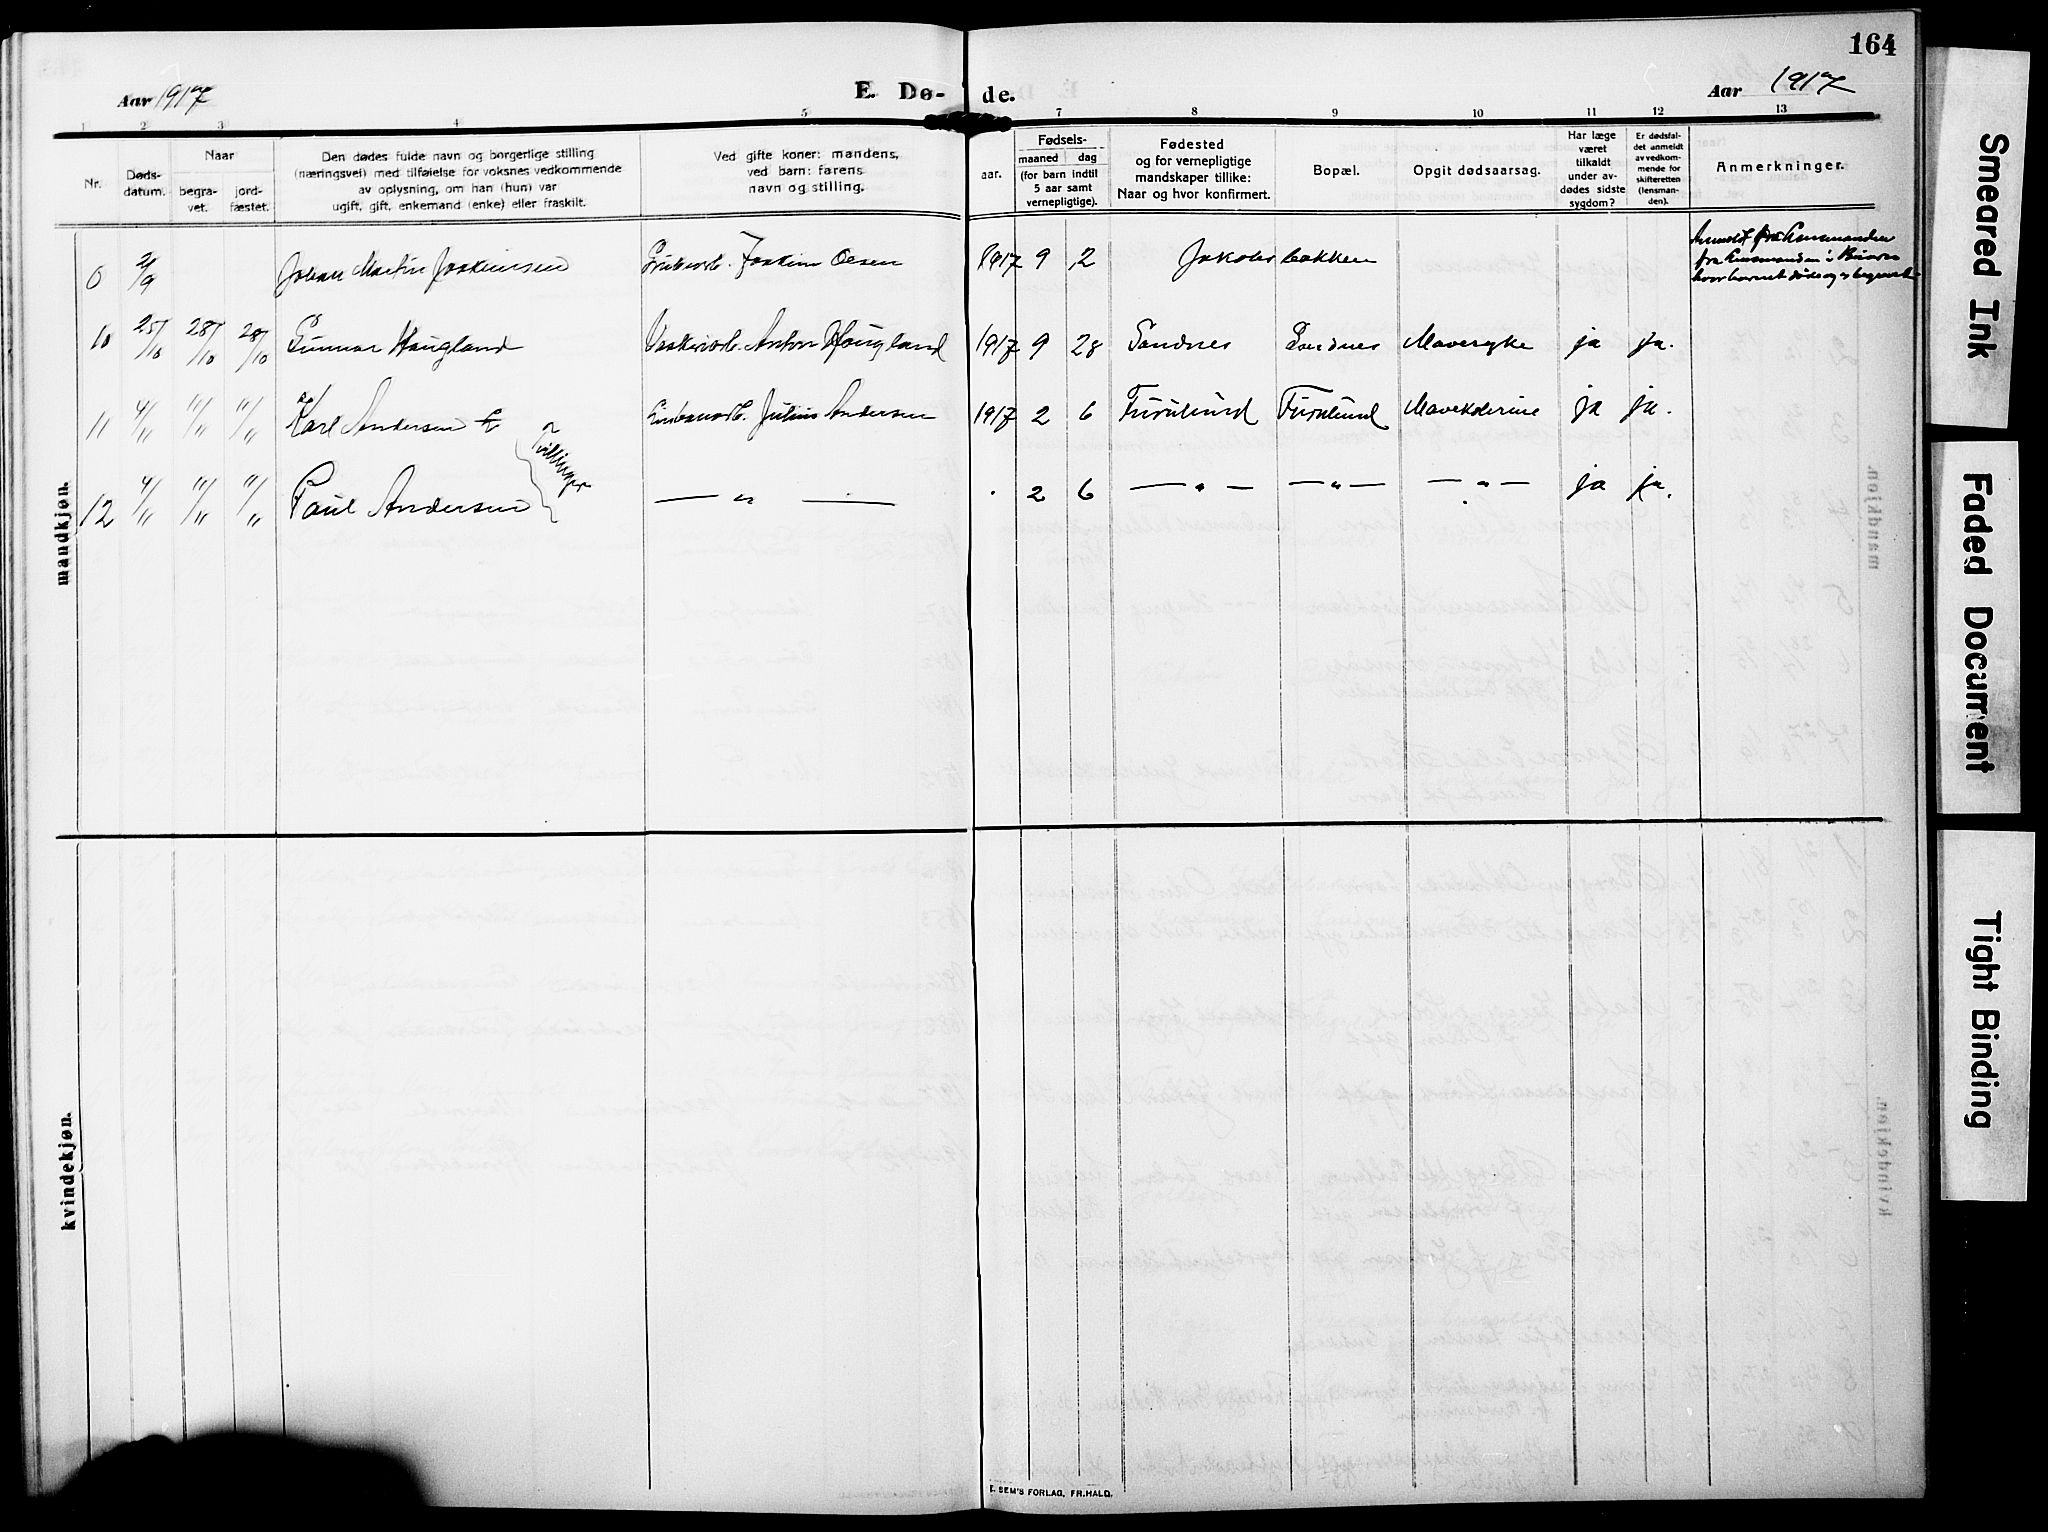 164
Aar 1917
E. Dø-
de.
Aar 1917
1 2 3 4 5 7 8 9 10 11 12 13
Nr.
Døds-
datum.
Naar
begra-
vet.
jord-
fæstet.
Den dødes fulde navn og borgerlige stilling
(næringsvei) med tilføielse for voksnes vedkommende
av oplysning, om han (hun) var
ugift, gift, enkemand (enke) eller fraskilt.
Ved gifte koner: mandens,
ved barn: farens
navn og stilling.
aar.
Fødsels-
maaned dag
(for barn indtil
5 aar samt
vernepligtige).
Fødested
og for vernepligtige
mandskaper tillike:
Naar og hvor konfirmert.
Bopæl.
Opgit dødsaarsag.
Har læge
været
tilkaldt
under av-
dødes sidste
sygdom?
Er dødsfal-
det anmeldt
av vedkom-
mende for
skifteretten
(lensman-
den).
Anmerkninger.
mandkjøn.
0 Johan Martin Joakimsen Joakim Olsen 1917 9 2 Jakobsbakken
10 25/10 28/10 28/10 Gunnar Haugland Anton Haugland 1917 9 28 Sandnes Sandnes Mavesyke ja ja.
11 4/11 11/11 11/11 Karl Andersen Julius Andersen 1917 2 6 Furulund Furulund ja ja.
Tvillinger
12 4/11 11/11 11/11 Paul Andersen — „ — 2 6 — „ — — „ — — „ — ja ja.
kvindekjøn.
E. SEM'S FORLAG, FR.HALD.
Smeared Ink
Faded Document
Tight Binding